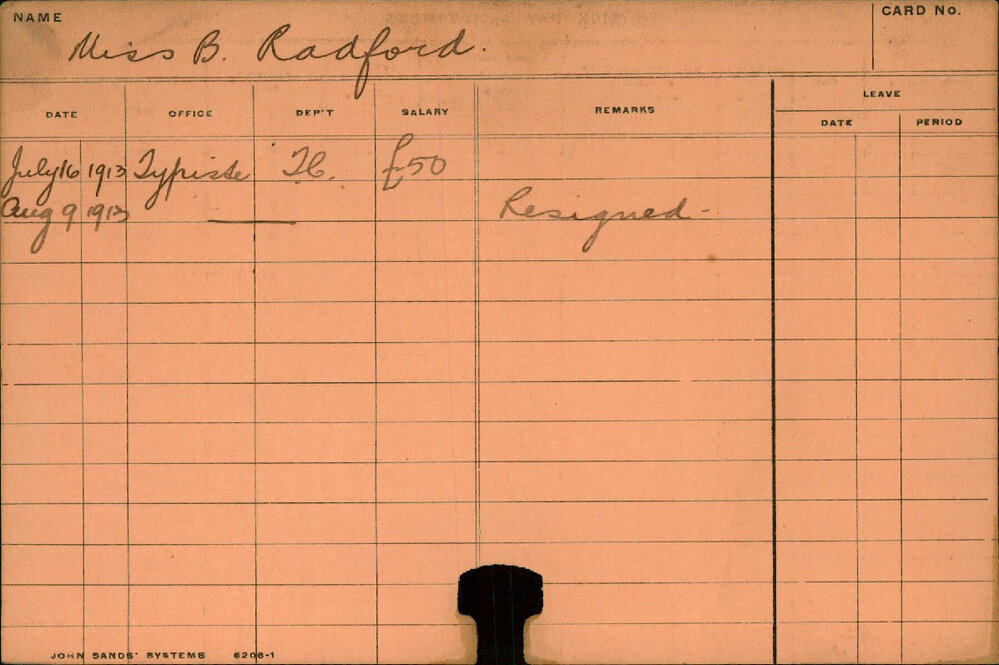 NAME
CARD No.
Miss B. Radford.
LEAVE
DATE OFFICE DEP'T SALARY REMARKS
DATE PERIOD
July 16 1913 Typiste £50
Aug 9 1913 —— Resigned -
JOHN SANDS' SYSTEMS 6206-1